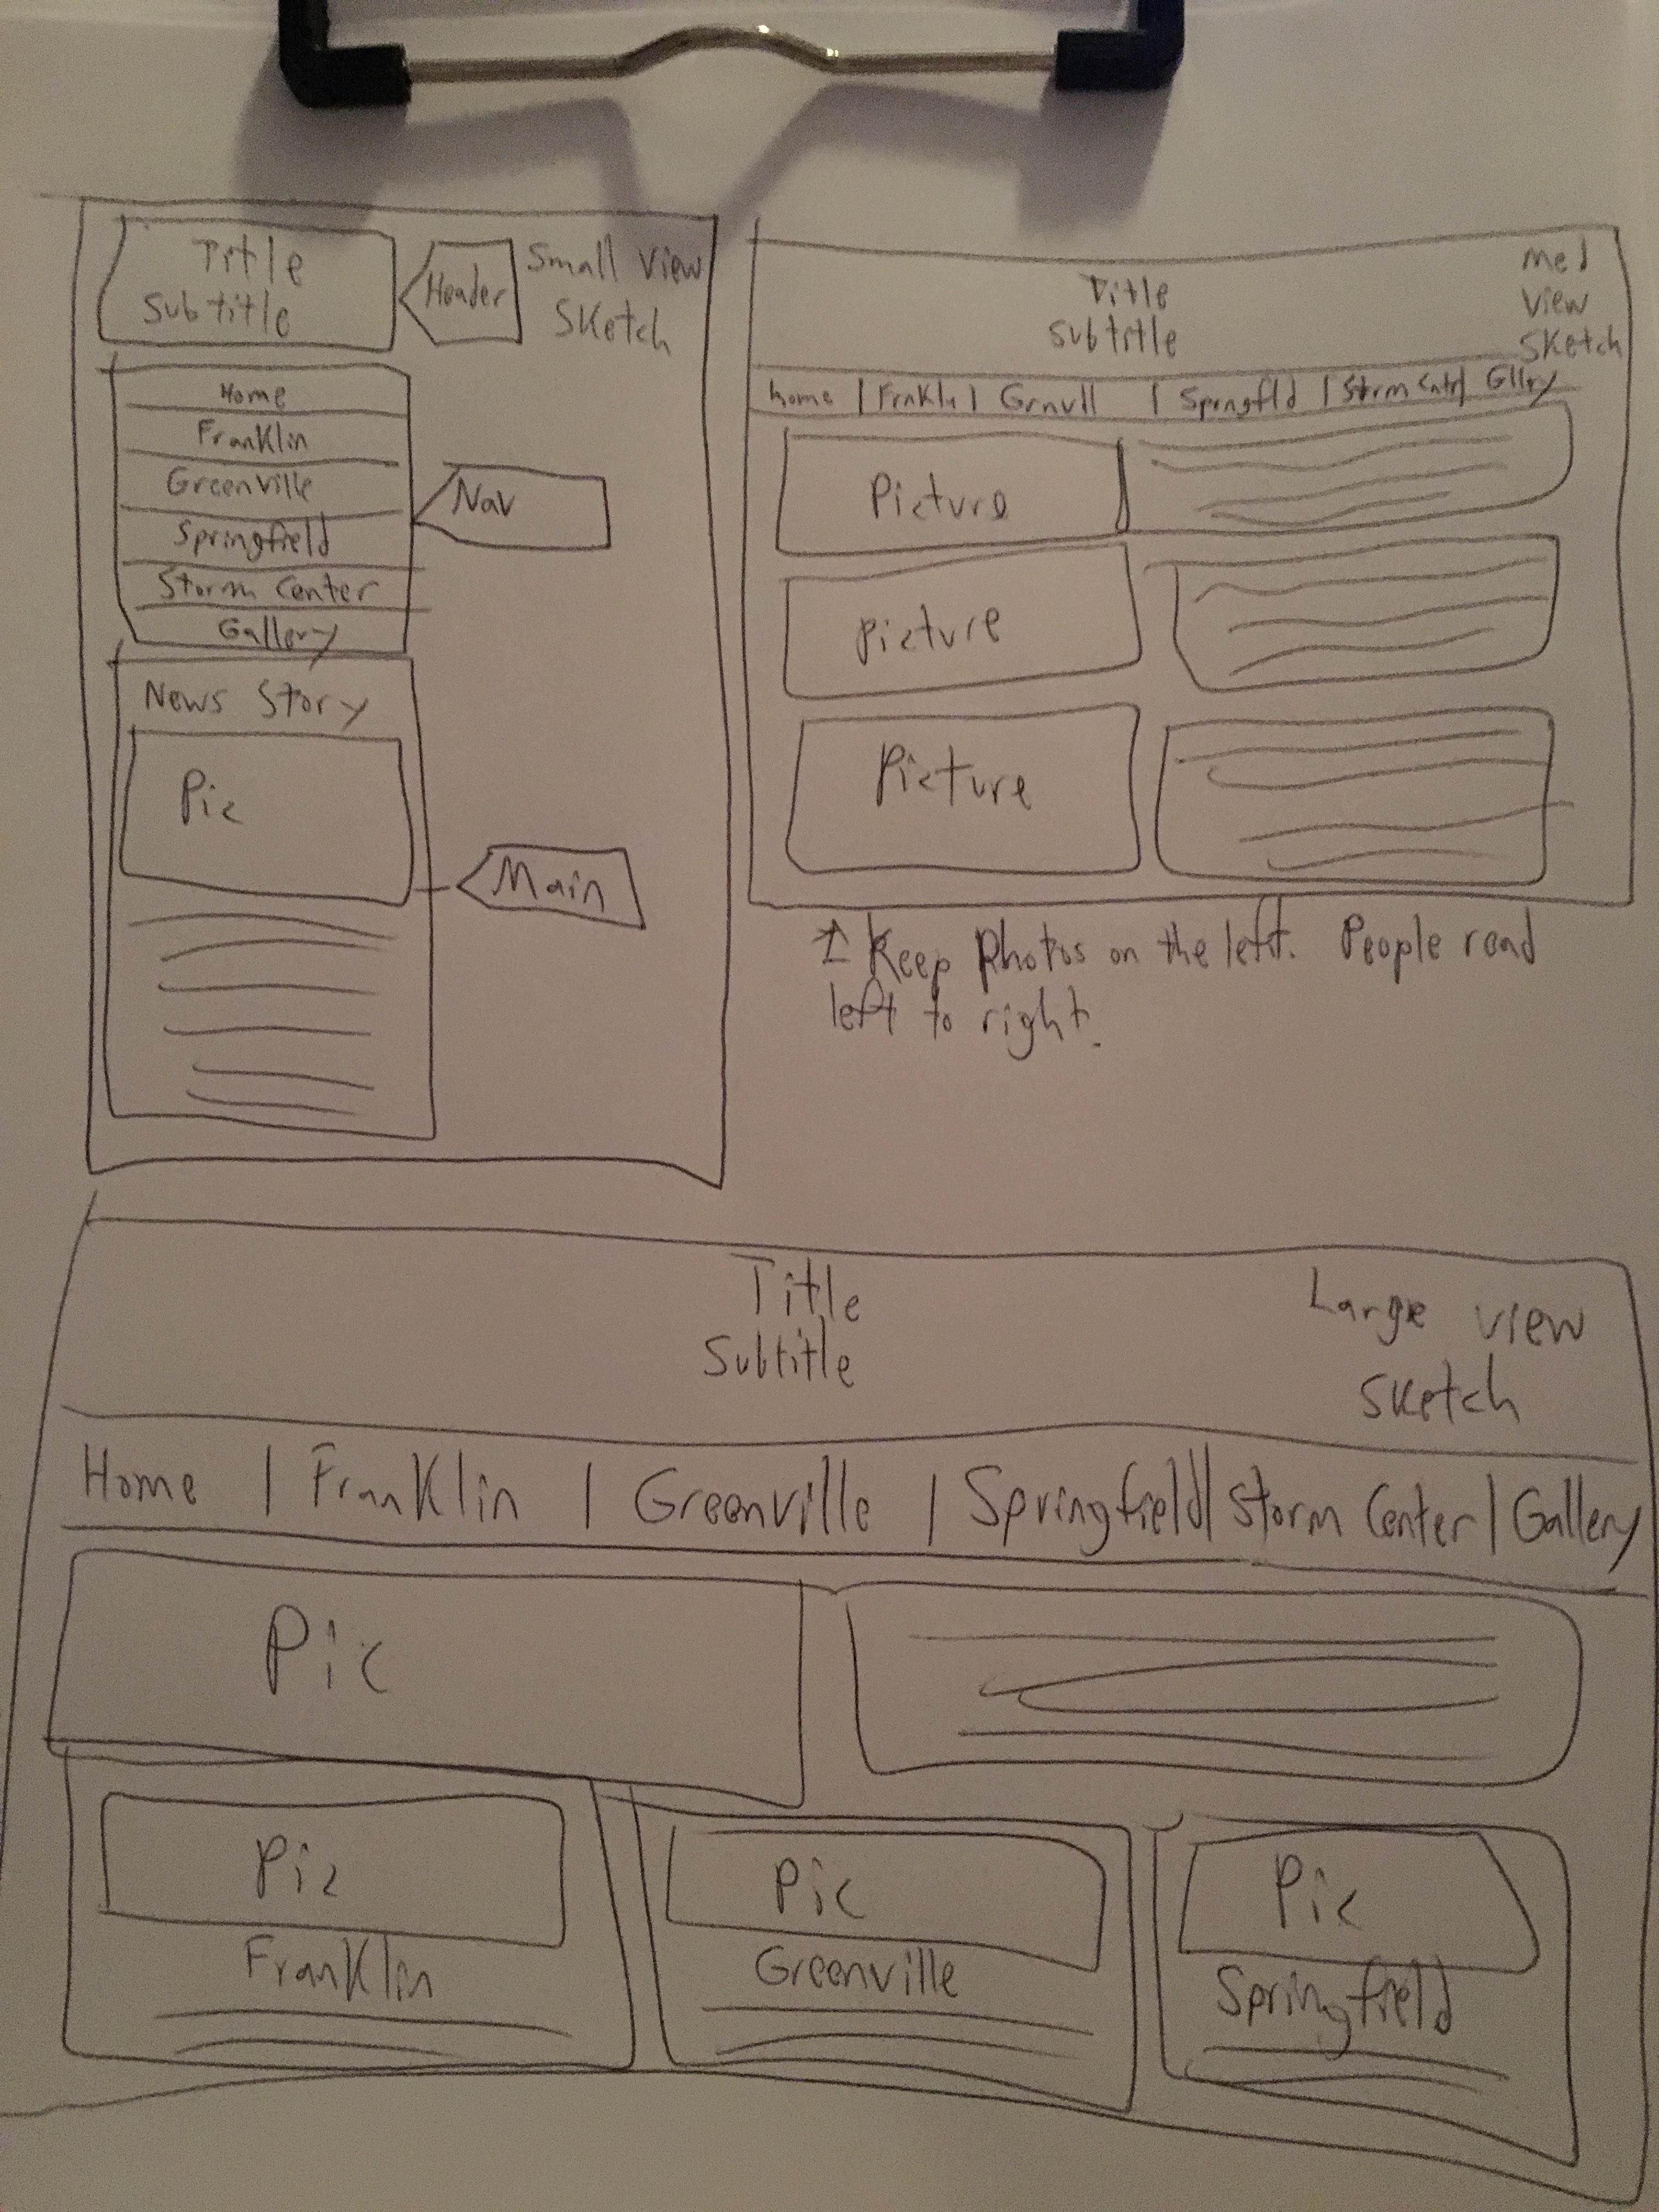 Title
Subtitle
Header
Small View
Sketch
Home
Franklin
Greenville
Springfield
Storm Center
Gallery
Nav
News Story
Pic
Main
Title
Subtitle
Med
View
Sketch
home | Frnkln | Grnvll | Springfld | Storm Cntr | Gllry
Picture
Picture
Picture
↑ Keep Photos on the left. People read
left to right.
Title
Subtitle
Large view
Sketch
Home | Franklin | Greenville | Springfield | Storm Center | Gallery
Pic
Pic
Franklin
Pic
Greenville
Pic
Springfield